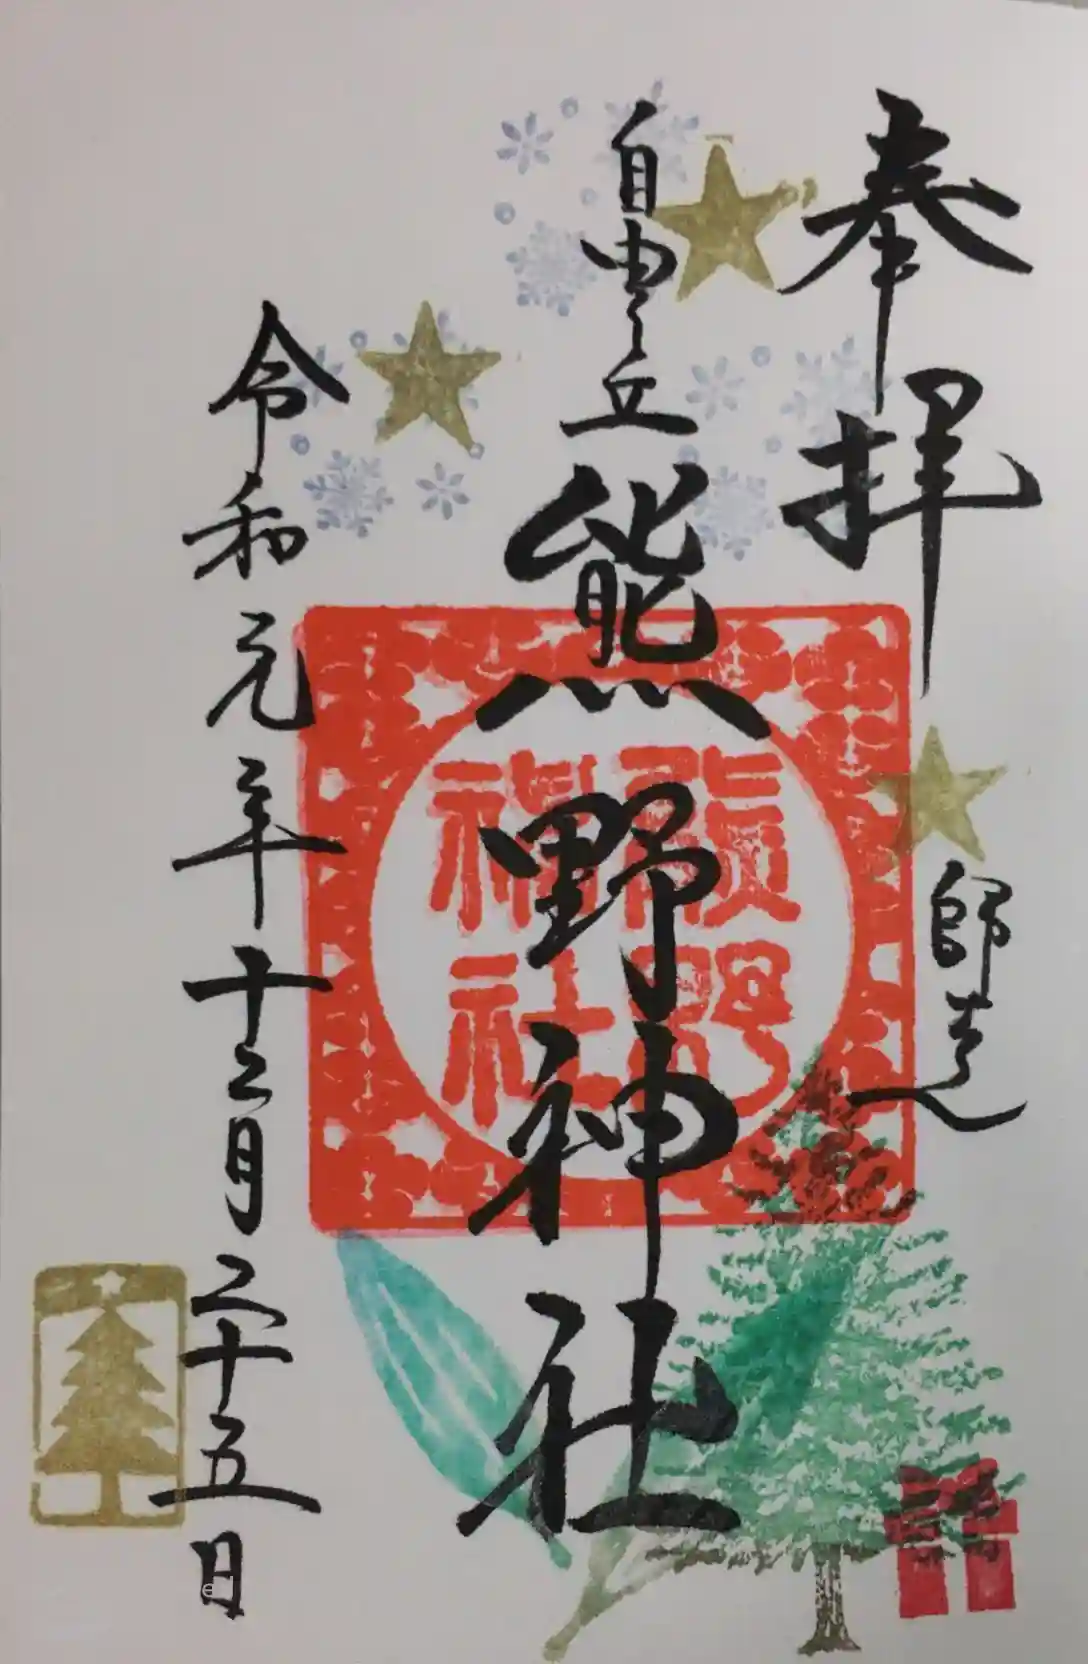 奉拝
師走
自由ヶ丘
熊野神社
熊野
神社
令和元年十二月二十五日